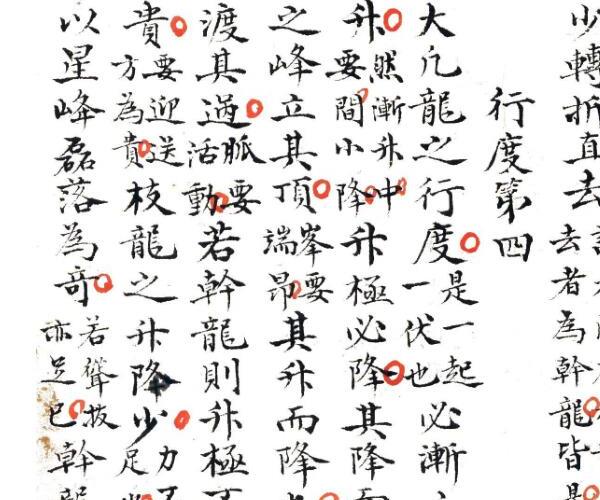 少轉折直去去者為幹龍皆
行度第四
大凢龍之行度是一起一伏也必漸
升然漸升中要間小降升極必降其降
之峰立其頂峯要端昂其升而降
渡其過脈要活動若幹龍則升極
貴要迎送方為貴枝龍之升降少力足
以星峰磊落為奇若聳拔亦足已幹